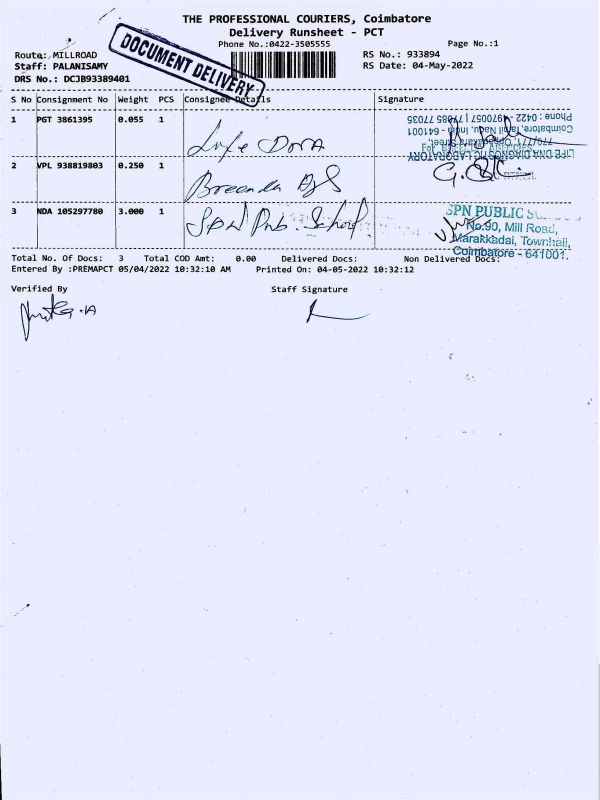 THE PROFESSIONAL COURIERS, Coimbatore
Delivery Runsheet - PCT
Phone No.:0422-3505555
Page No.:1
Route: MILLROAD
RS No.: 933894
Staff: PALANISAMY
RS Date: 04-May-2022
DRS No.: DCJB93389401
DOCUMENT DELIVERY
S No Consignment No Weight PCS Consignee Details Signature
1 PGT 3861395 0.055 1
Life DNA
Phone : 0422 - 4970057 | 77085 77035
Coimbatore, Tamil Nadu, India - 641001
LIFE DNA DIAGNOSTIC LABORATORY
2 VPL 938819803 0.250 1
3 NDA 105297780 3.000 1
SPN Pub. School
SPN PUBLIC
No.90, Mill Road,
Marakkadai, Townhall,
Coimbatore - 641001.
Total No. Of Docs: 3 Total COD Amt: 0.00 Delivered Docs: Non Delivered Docs:
Entered By :PREMAPCT 05/04/2022 10:32:10 AM Printed On: 04-05-2022 10:32:12
Verified By Staff Signature